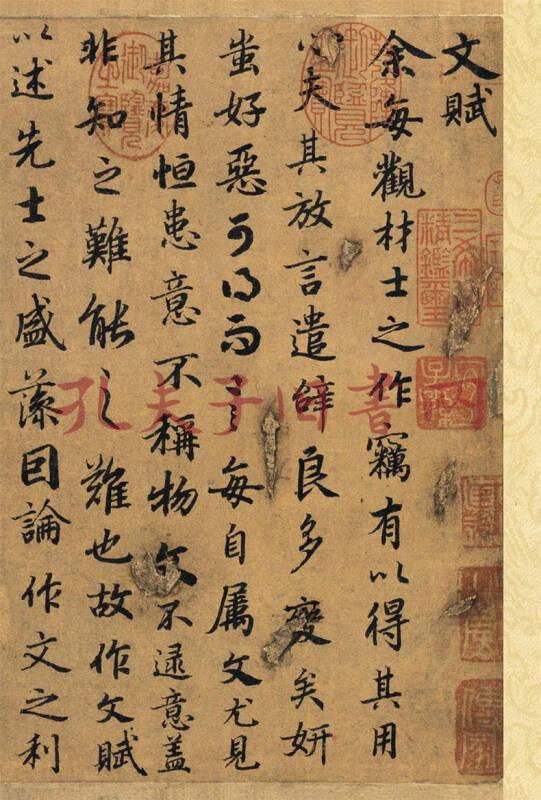 文賦
余每觀材士之作竊有以得其用
心夫其放言遣辭良多變矣妍
蚩好惡可得而言每自屬文尤見
其情恒患意不稱物文不逮意蓋
非知之難能之難也故作文賦
以述先士之盛藻因論作文之利
三希堂精鑑璽
孔夫子旧书网